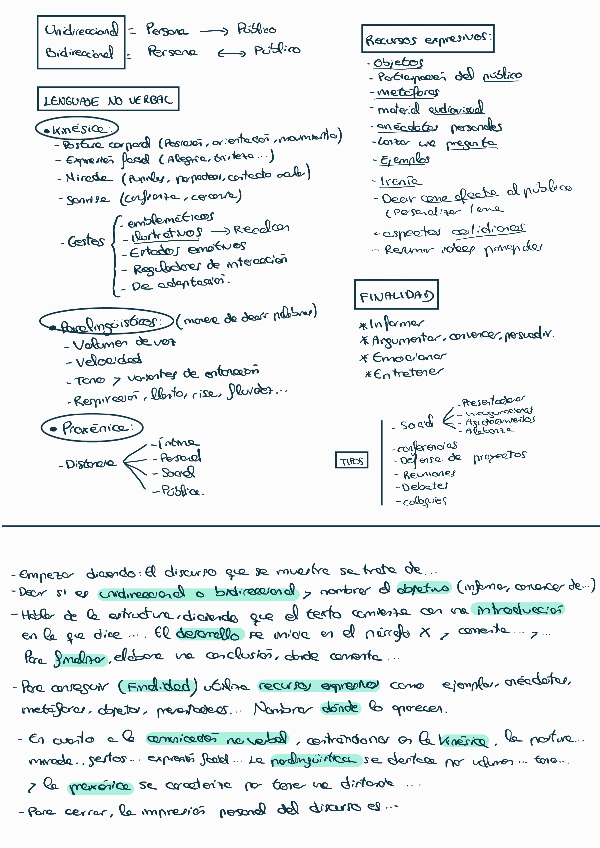 Unidireccional = Persona → Público
Bidireccional = Persona ↔ Público
LENGUAJE NO VERBAL
• Kinésica:
- Postura corporal (Posición, orientación, movimiento)
- Expresión facial (Alegría, tristeza...)
- Mirada (Pupilas, parpadeo, contacto ocular)
- Sonrisa (confianza, cercanía)
- Gestos
- emblemáticos
- Ilustrativos → Recalcar
- Estados emotivos
- Reguladores de interacción
- De adaptación.
• Paralingüísticos: (manera de decir palabras)
- Volumen de voz
- Velocidad
- Tono y variantes de entonación
- Respiración, llanto, risa, fluidez...
• Proxémica:
- Distancia
- Íntima
- Personal
- Social
- Pública.
Recursos expresivos:
- Objetos
- Participación del público
- metáforas
- material audiovisual
- anécdotas personales
- Lanzar una pregunta
- Ejemplos
- Ironía
- Decir como afecta al público
(Personalizar tema
- aspectos cotidianos
- Resumir ideas principales
FINALIDAD
* Informar
* Argumentar, convencer, persuadir.
* Emocionar
* Entretener
TIPOS
- Social
- Presentador
- Inauguraciones
- Agradecimientos
- Alabanza
- conferencias
- Defensa de proyectos
- Reuniones
- Debates
- coloquios
- Empezar diciendo: El discurso que se muestra se trata de...
- Decir si es unidireccional o bidireccional y nombrar el objetivo (informar, convencer de...)
- Hablar de la estructura, diciendo que el texto comienza con una introducción
en la que dice .... El desarrollo se inicia en el párrafo X, y comenta ... y...
Para finalizar, elabora una conclusión, donde comenta ...
- Para conseguir (Finalidad) utiliza recursos expresivos como ejemplos, anécdotas,
metáforas, objetos, ... Nombrar dónde lo aparecen.
- En cuanto a la comunicación no verbal, centrándonos en la Kinésica, la postura...
mirada.. gestos... expresión facial... La paralingüística se destaca por volumen... tono...
y la proxémica se caracteriza por tener una distancia ....
- Para cerrar, la impresión personal del discurso es ...